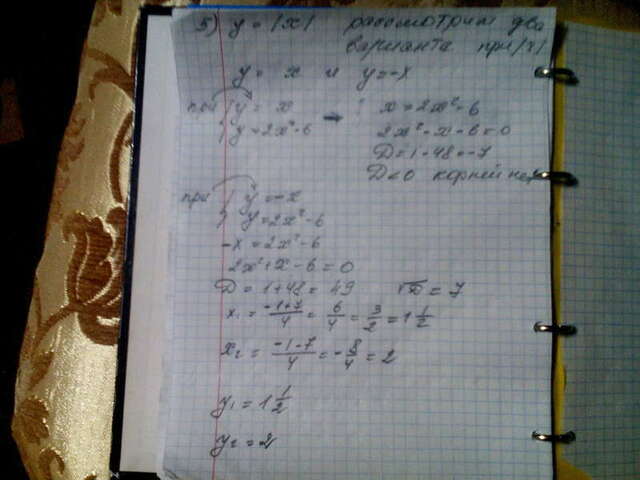 5) y = |x| рассмотрим два
варианта при |x|
y = x и y = -x
при { y = x
{ y = 2x² - 6
x = 2x² - 6
2x² - x - 6 = 0
D = 1 - 48 = -7
D < 0 корней нет
при { y = -x
{ y = 2x² - 6
-x = 2x² - 6
2x² + x - 6 = 0
D = 1 + 48 = 49 √D = 7
x₁ = \frac{-1+7}{4} = \frac{6}{4} = \frac{3}{2} = 1\frac{1}{2}
x₂ = \frac{-1-7}{4} = -\frac{8}{4} = 2
y₁ = 1\frac{1}{2}
y₂ = 2